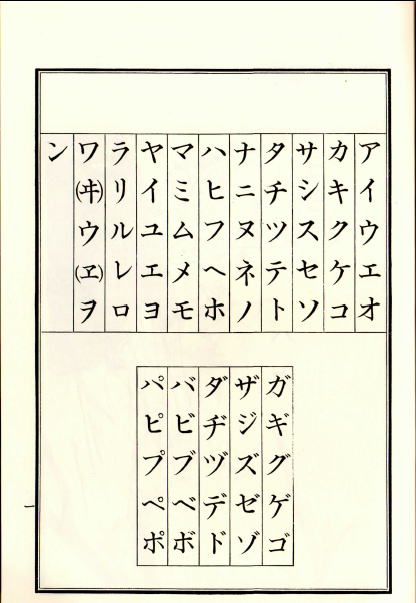 アイウエオ
カキクケコ
サシスセソ
タチツテト
ナニヌネノ
ハヒフヘホ
マミムメモ
ヤイユエヨ
ラリルレロ
ワ(ヰ)ウ(ヱ)ヲ
ン
ガギグゲゴ
ザジズゼゾ
ダヂヅデド
バビブベボ
パピプペポ
一